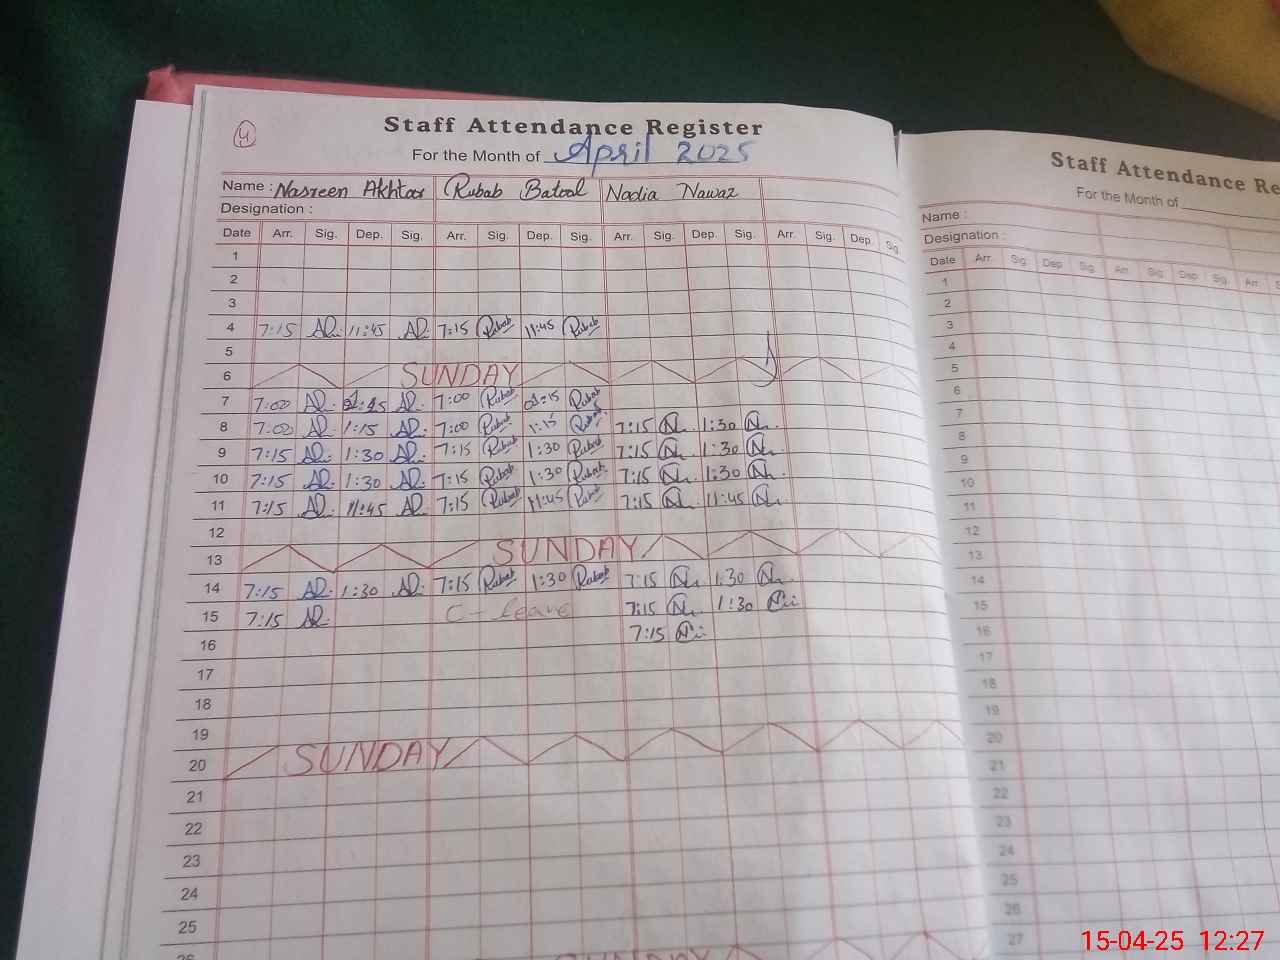 4
Staff Attendance Register
For the Month of April 2025
Name : Nasreen Akhtar Rubab Batool Nadia Nawaz
Designation :
Date Arr. Sig. Dep. Sig. Arr. Sig. Dep. Sig. Arr. Sig. Dep. Sig. Arr. Sig. Dep. Sig.
1
2
3
4 7:15 11:45 7:15 Rubab 11:45 Rubab
5
6 SUNDAY
7 7:00 7:00 Rubab 01:15 Rubab
8 7:00 1:15 7:00 Rubab 1:15 Rubab 7:15 1:30
9 7:15 1:30 7:15 Rubab 1:30 Rubab 7:15 1:30
10 7:15 1:30 7:15 Rubab 1:30 Rubab 7:15 1:30
11 7:15 11:45 7:15 Rubab 11:45 Rubab 7:15 11:45
12
13 SUNDAY
14 7:15 1:30 7:15 Rubab 1:30 Rubab 7:15 1:30
15 7:15 C-leave 7:15 1:30
16 7:15
17
18
19
20 SUNDAY
21
22
23
24
25
26 SUNDAY
Staff Attendance Re
For the Month of
Name :
Designation :
Date Arr. Sig. Dep. Sig. Arr. Sig. Dep. Sig. Arr.
1
2
3
4
5
6
7
8
9
10
11
12
13
14
15
16
17
18
19
20
21
22
23
24
25
26
27
15-04-25 12:27